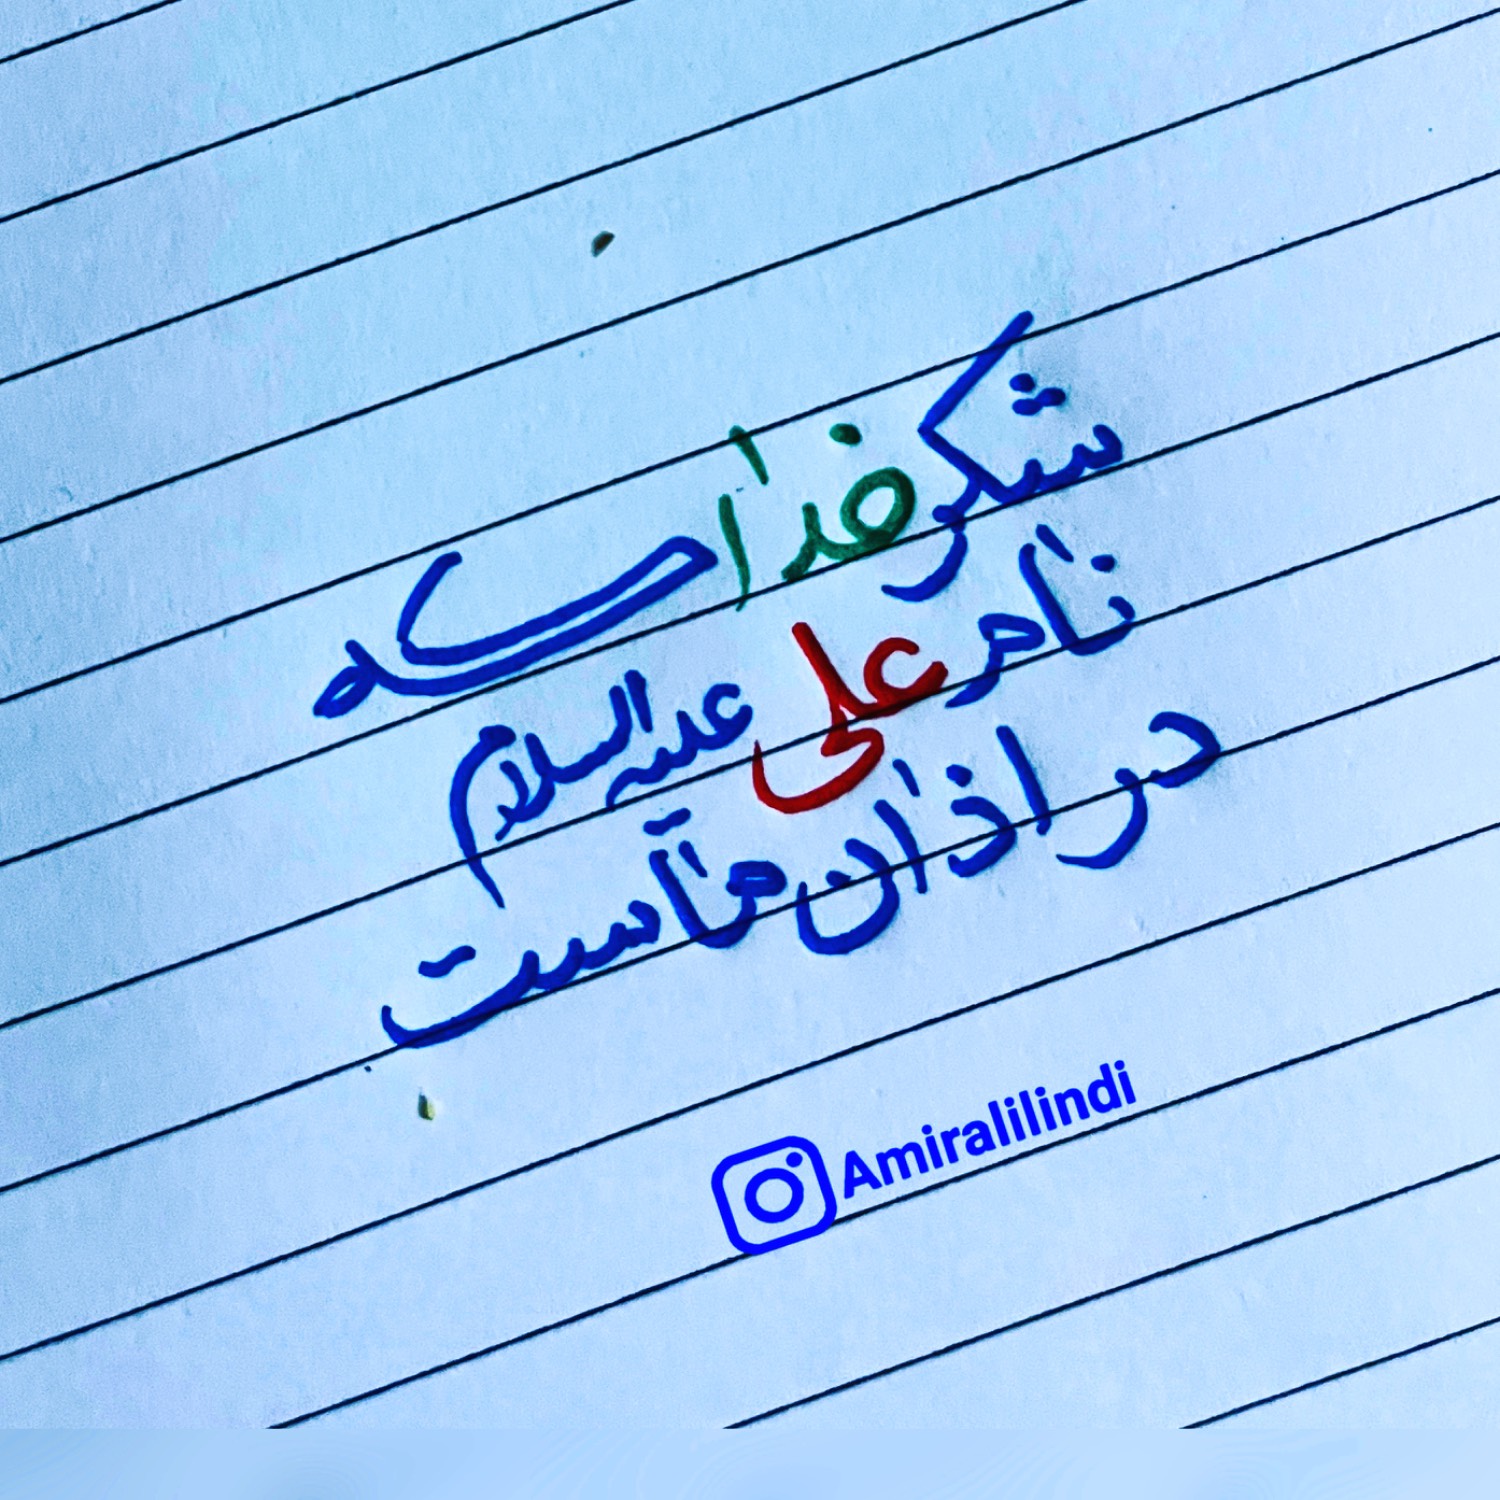 شکر خدا که
نام علی علیه السلام
در اذان ماست
Amiralilindi